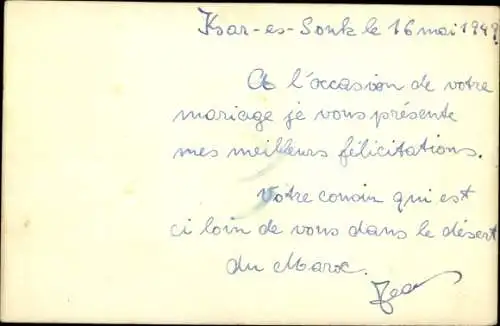 Ksar-es-Souk le 16 mai 1949.
A l'occasion de votre
mariage je vous présente
mes meilleurs félicitations.
Votre cousin qui est
ci loin de vous dans le désert
du Maroc.
Jean